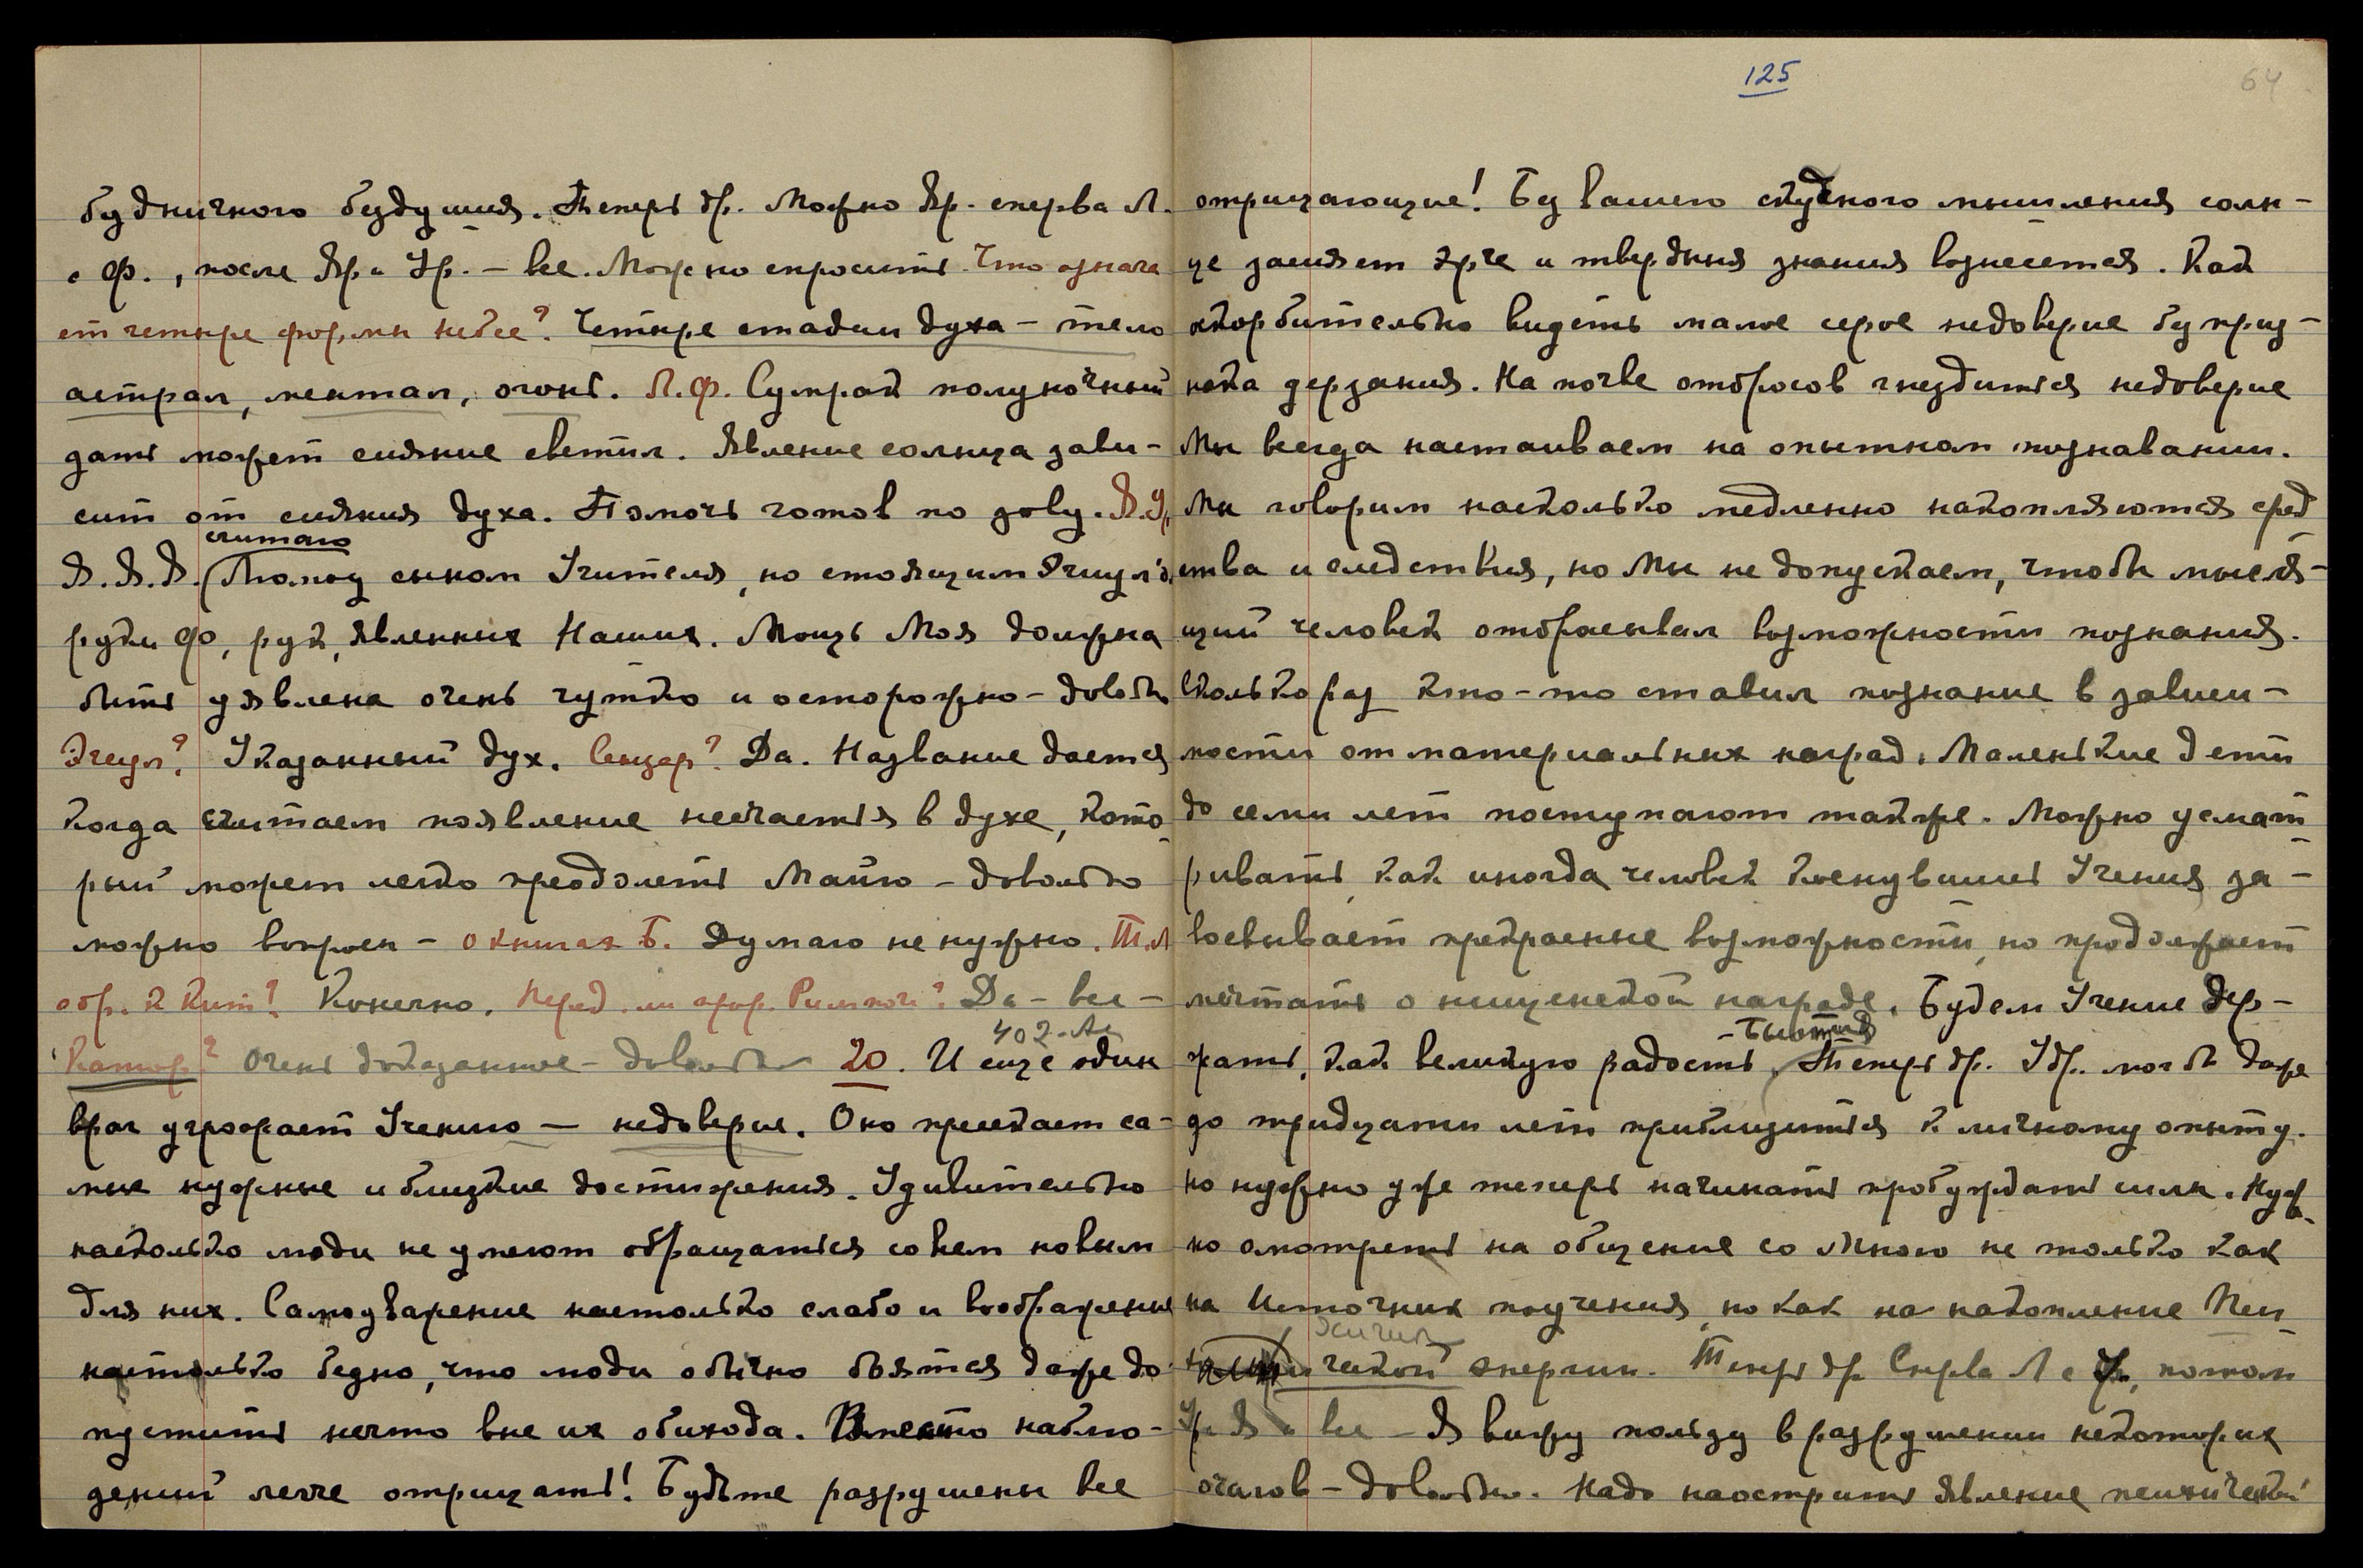 будничного бездушия. Теперь др. Можно Яр. сперва Л.
с Ф., после Яр. и Ур. – все. Можно спросить. Что означа
ет четыре формы небес? Четыре стадии духа – тело
астрал, ментал, огонь. Л.Ф. Сумрак полуночный
дать может сияние светил. Явление солнца зави-
сит от сияния духа. Помочь готов по зову. Я.Ур
считаю
Я.Я.Я. Помощ сынам Учителя, но стоящим
руки Ф, рук, явленных Наших. Мощь Моя должна
быть уявлена очень чутко и осторожно – довольно
Эгеул? Указанный дух. Сенцар? Да. Название дается
когда считаем появление несчастья в духе, кото-
рый может легко преодолеть Майю – довольно
можно вопросы – о книгах Б. Думаю не нужно. Т.Л
обр. к Кит? Конечно. Перед. ли Да – все –
Очень доказанное – довольно 20. И еще один
402-Ас
враг угрожает Учению – недоверие. Оно пресекает са-
мые нужные и близкие достижения. Удивительно
насколько люди не умеют обращаться со всем новым
для них. Самоодарение настолько слабо и воображение
настолько бедно, что люди обычно боятся даже до-
пустить нечто вне их обихода. Вместо наблю-
дений легче отрицать! Будьте разрушены все
125
64
отрицающие! Без вашего скудного мышления солн-
це засияет ярче и твердыня знания вознесется. Как
оскорбительно видеть малое серое недоверие без приз-
нака дерзания. На почве отбросов гнездится недоверие
Мы всегда настаиваем на опытном познавании.
Мы говорим насколько медленно накопляются сред
ства и следствия, но Мы не допускаем, чтобы мысля-
щий человек отбрасывал возможности познания.
Сколько раз кто-то ставил познание в зависи-
мости от материальных наград. Маленькие дети
до семи лет поступают также. Можно усмат-
ривать, как иногда человек коснувшись Учения за-
воевывает прекрасные возможности, но продолжает
мечтать о нищенской награде. Будем Учение дер-
жать, как великую радость бытия. Теперь др. Удр. мог бы даже
до тридцати лет приблизиться к личному опыту.
Но нужно уже теперь начинать пробуждать силы. Нуж-
но смотреть на общение со Мною не только как
на Источник поучения, но как на накопление Пси-
хической энергии. Теперь др. Сперва Л с Ф., потом
Ур Я и все – Я вижу пользу в разрушении некоторых
очагов – довольно. Надо наострить явление психической